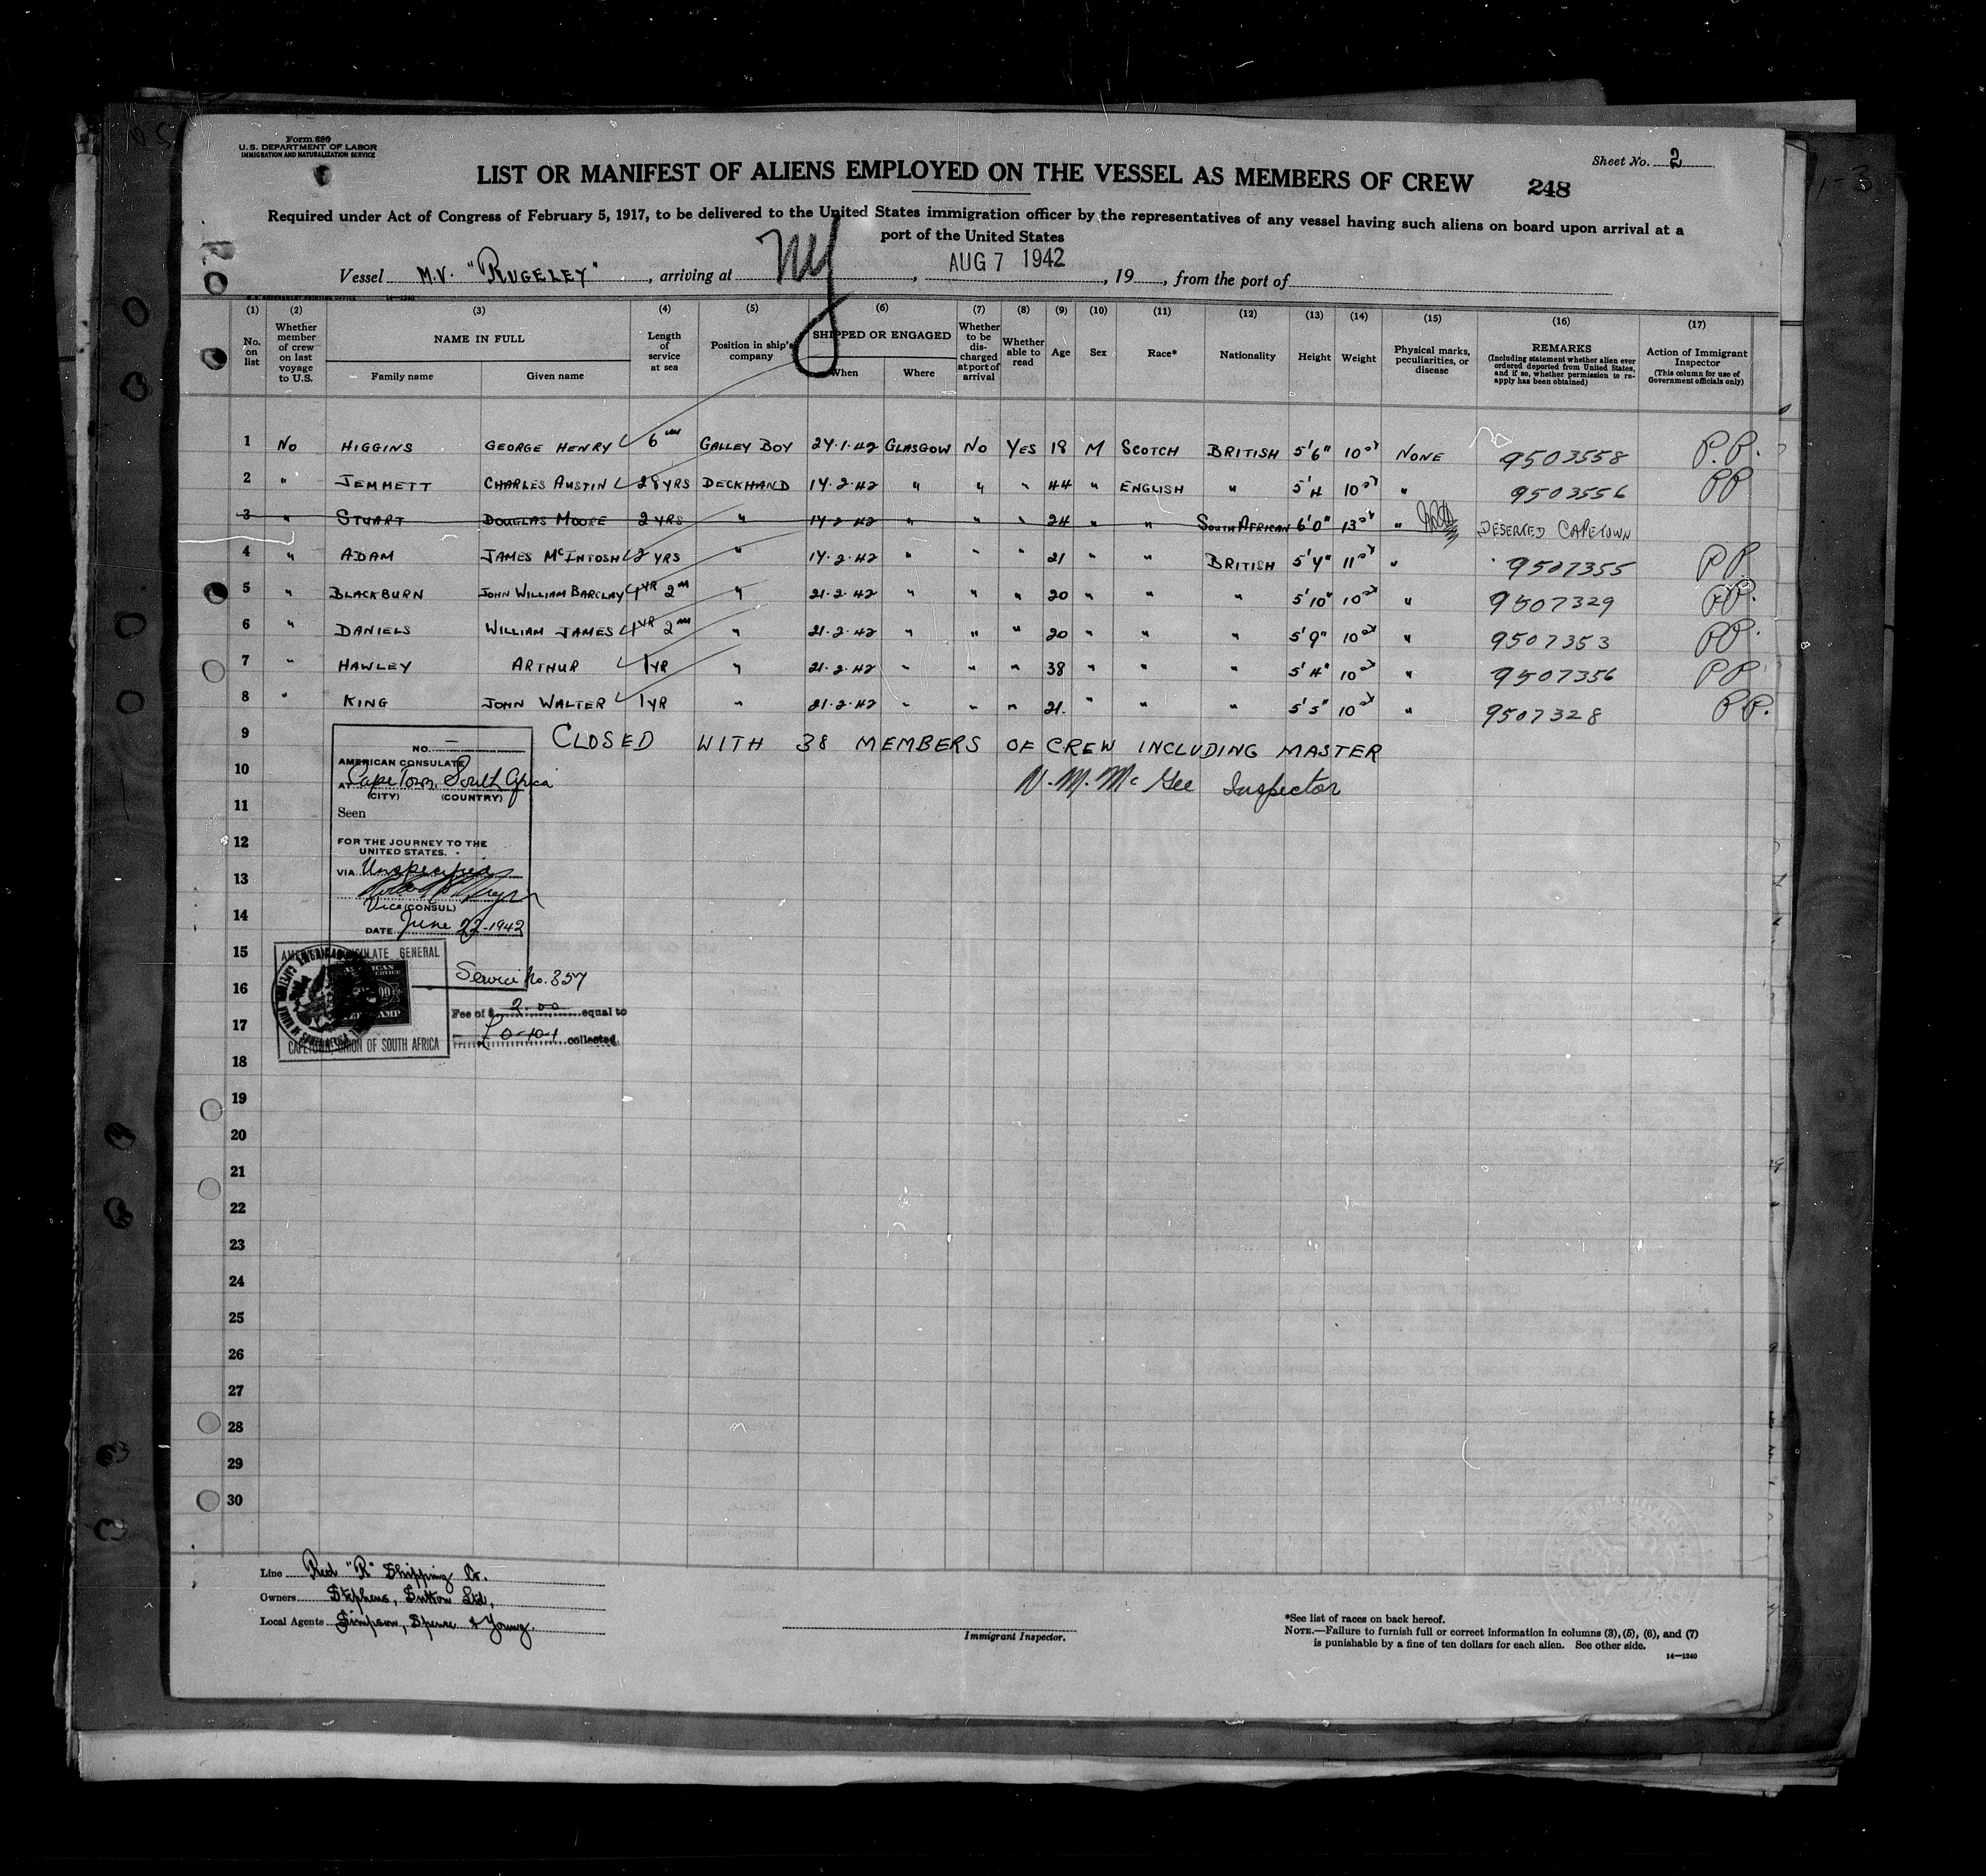 Form 680
U.S. DEPARTMENT OF LABOR
IMMIGRATION AND NATURALIZATION SERVICE
Sheet No. 2
LIST OR MANIFEST OF ALIENS EMPLOYED ON THE VESSEL AS MEMBERS OF CREW 248
Required under Act of Congress of February 5, 1917, to be delivered to the United States immigration officer by the representatives of any vessel having such aliens on board upon arrival at a
port of the United States
Vessel M.V. "RUGELEY", arriving at NY, AUG 7 1942, 19, from the port of
U.S. GOVERNMENT PRINTING OFFICE 14-1240
(1) (2) (3) (4) (5) (6) (7) (8) (9) (10) (11) (12) (13) (14) (15) (16) (17)
No. on list
Whether member of crew on last voyage to U.S.
NAME IN FULL
Family name
Given name
Length of service at sea
Position in ship's company
SHIPPED OR ENGAGED
When
Where
Whether to be discharged at port of arrival
Whether able to read
Age
Sex
Race*
Nationality
Height
Weight
Physical marks, peculiarities, or disease
REMARKS
(Including statement whether alien ever ordered deported from United States, and if so, whether permission to reapply has been obtained)
Action of Immigrant Inspector
(This column for use of Government officials only)
1 No HIGGINS GEORGE HENRY 6 m GALLEY BOY 24.1.42 GLASGOW No YES 18 M SCOTCH BRITISH 5'6" 10 NONE 9503558 P.P.
2 " JEMMETT CHARLES AUSTIN 28 YRS DECKHAND 14.2.42 " " " 44 " ENGLISH " 5'4 10 " 9503556 PP
3 " STUART DOUGLAS MOORE 2 YRS " 14.2.42 " " " 24 " " SOUTH AFRICAN 6'0" 13 " DESERTED CAPETOWN
4 " ADAM JAMES McINTOSH 2 YRS " 14.2.42 " " " 21 " " BRITISH 5'4" 11 " 9507355 PP
5 " BLACKBURN JOHN WILLIAM BARCLAY 1 YR 2 M " 21.2.42 " " " 20 " " " 5'10" 10 " 9507329 PP.
6 " DANIELS WILLIAM JAMES 1 YR 2 M " 21.2.42 " " " 20 " " " 5'9" 10 " 9507353 PP.
7 " HAWLEY ARTHUR 1 YR " 21.2.42 " " " 38 " " " 5'4" 10 " 9507356 PP
8 " KING JOHN WALTER 1 YR " 21.2.42 " " " 21. " " " 5'5" 10 " 9507328 PP.
9 CLOSED WITH 38 MEMBERS OF CREW INCLUDING MASTER
10 N. M. McGee Inspector
11
12
13
14
15
16
17
18
19
20
21
22
23
24
25
26
27
28
29
30
NO. —
AMERICAN CONSULATE
AT Cape Town, South Africa
(CITY) (COUNTRY)
Seen
FOR THE JOURNEY TO THE
UNITED STATES.
VIA Unspecified
Vice (CONSUL)
DATE June 22-1942
AMERICAN CONSULATE GENERAL
CAPETOWN, UNION OF SOUTH AFRICA
Service No. 357
Fee of $ 2.00 equal to
£ 0-10-1 collected
Line Red "R" Shipping Co.
Owners Stephens, Sutton Ltd,
Local Agents Simpson, Spence & Young.
Immigrant Inspector.
*See list of races on back hereof.
NOTE.—Failure to furnish full or correct information in columns (3), (5), (6), and (7)
is punishable by a fine of ten dollars for each alien. See other side.
14—1240